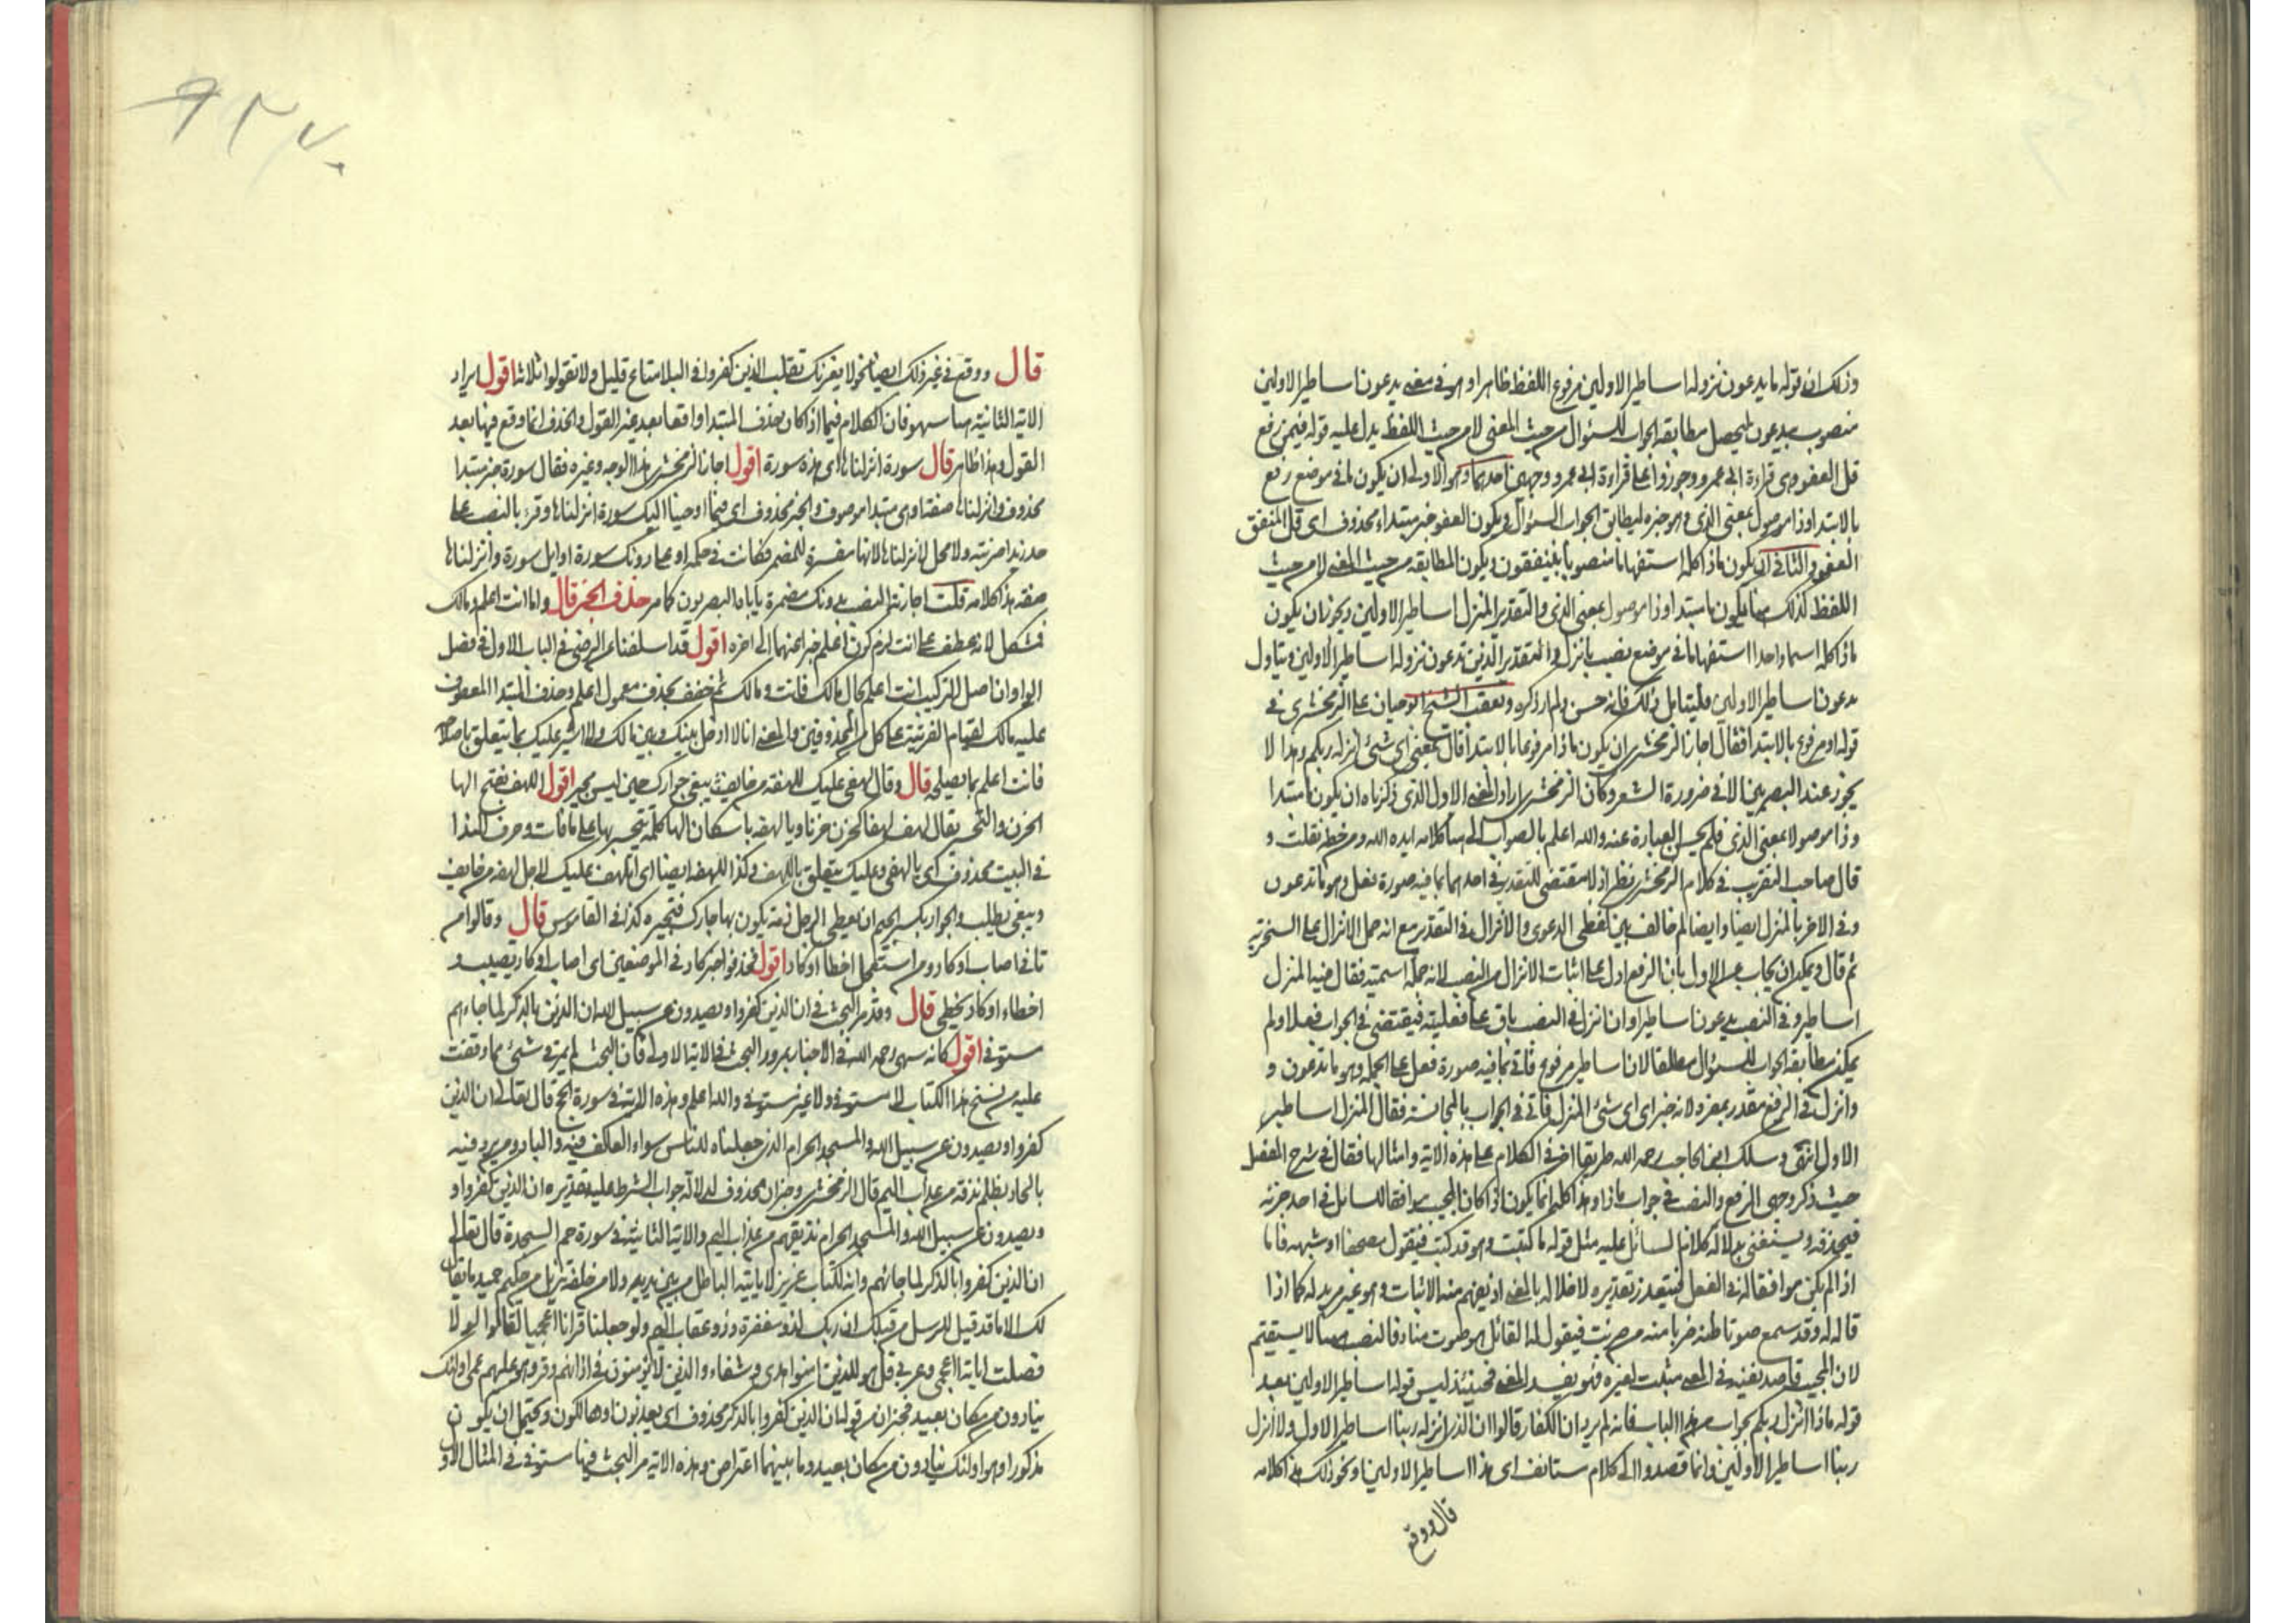 وذلك ان قوله ما يدعون نزوله اساطير الاولين مرفوع اللفظ ظاهرا وهو في معنى يدعون اساطير الاولين
منصوب بيدعون ليحصل مطابقة الجواب للسؤال من حيث المعنى لا من حيث اللفظ يدل عليه قوله فيمن رفع
قل العفو وهي قراءة ابي عمرو وجوزوا على قراءة ابي عمرو وجهين احدهما وهو الاولى ان يكون ما في موضع رفع
بالابتدا وذا موصول بمعنى الذي وهو خبره ليطابق الجواب السؤال ويكون العفو خبر مبتداء محذوف اى قل المنفق
العفو والثاني ان يكون ماذا كله استفهاما منصوبا بينفقون ويكون المطابقة من حيث المعنى لا من حيث
اللفظ كذلك هنا يكون ما مبتدا وذا موصول بمعنى الذي والتقدير المنزل اساطير الاولين ويجوز ان يكون
ماذا كله اسما واحدا استفهاما في موضع نصب بانزل والتقدير الذين تدعون نزوله اساطير الاولين ويتاول
يدعون اساطير الاولين فليتامل ذلك فانه حسن ولم ار ذكره وتعقب الشيخ ابو حيان على الزمخشري في
قوله او مرفوع بالابتدا فقال اجاز الزمخشري ان يكون ماذا مرفوعا بالابتدا قال بمعنى اى شئ انزله ربكم وهذا لا
يجوز عند البصريين الا في ضرورة الشعر وكان الزمخشري اراد المعنى الاول الذي ذكرناه ان يكون ما مبتدا
وذا موصولا بمعنى الذي فلم يحسن العبارة عنه والله اعلم بالصواب الى هنا كلامه ايده الله ومن خطه نقلت و
قال صاحب التقريب في كلام الزمخشري نظر اذ لا مقتضى للتقدير في احدهما بما فيه صورة فعل وهو ما تدعون
وفي الاخر بالمنزل ايضا وايضا لم خالف بين لفظي الدعوى والانزال في التقدير مع انه حمل الانزال على السخرية
ثم قال ويمكن ان يجاب عن الاول بان الرفع ادل على اثبات الانزال من النصب لانه جملة اسمية فقال فيه المنزل
اساطير وفي النصب يدعون اساطير او ان انزل في النصب باق على فعليته فيقتضي في الجواب فعلا ولم
يمكن مطابقة الجواب للسؤال مطلقا لان اساطير مرفوع فاتى بما فيه صورة فعل على الجملة وهو ما تدعون و
وانزل في الرفع مقدر بمفرد لانه خبر اى اى شئ المنزل فاتى في الجواب بالمجانسة فقال المنزل اساطير
الاولين انتهى وسلك ابن الحاجب رحمه الله طريقا اخر في الكلام على هذه الاية وامثالها فقال في شرح المفصل
حيث ذكر وجهي الرفع والنصب في جواب ماذا وهذا كله انما يكون اذا كان المجيب موافقا للسائل في احد جزئيه
فيحذفه ويستغني بدلالة كلام السائل عليه مثل قوله ما كتبت وهو قد كتب فيقول مصحفا او شبهه فاما
اذا لم يكن موافقا له في الفعل فيتعذر تقديره لاخلاله بالمعنى اذ يفهم منه الاثبات وهو غير مريد له كما اذا
قال له وقد سمع صوتا ظنه ضربا منه من ضربت فيقول له القائل هو صوت مناد فالنصب هنا لا يستقيم
لان المجيب قاصد نفيه في المعنى مثبت لغيره فهو يفسد المعنى فحينئذ ليس قوله اساطير الاولين بعد
قوله ماذا انزل ربكم بجواب من هذا الباب فانه لم يرد ان الكفار قالوا ان الذي انزله ربنا اساطير الاولين ولا انزل
ربنا اساطير الاولين وانما قصدوا الى كلام مستانف اى هذا اساطير الاولين او نحو ذلك هذا كلامه
قال ووقع
٩٢٧
قال ووقع في غير ذلك ايضا نحو لا يغرنك تقلب الذين كفروا في البلاد متاع قليل ولا تقولوا ثلاثة اقول ايراد
الاية الثانية هنا سهو فان الكلام فيما اذا كان حذف المبتدا واقعا بعد غير القول والحذف انما وقع فيها بعد
القول وهذا ظاهر قال سورة انزلناها اى هذه سورة اقول اجاز الزمخشري هذا الوجه وغيره فقال سورة خبر مبتدا
محذوف وانزلناها صفة او هي مبتدا موصوف والخبر محذوف اى فيما اوحينا اليك سورة انزلناها وقرئ بالنصب على
حد زيدا ضربته ولا محل لانزلناها لانها مفسرة للمضمر فكانت في حكمه او على دونك سورة او اتل سورة وانزلناها
صفة هذا كلامه قلت اجازته النصب بدونك مضمرة ياباه البصريون كما مر حذف الخبر قال واما انت اعلم ومالك
فمشكل لانه ان عطف على انت لزم كون اعلم خبرا عنهما الى اخره اقول قد اسلفنا عن الرضي في الباب الاول في فصل
الواو ان اصل التركيب انت اعلم بحال مالك فانت ومالك ثم خفف بحذف معمول اعلم وحذف المبتدا المعطوف
عليه مالك لقيام القرينة على كل من المحذوفين والمعنى انا لا ادخل بينك وبين مالك ولا اشير عليك بما يتعلق باصلاحه
فانت اعلم بما يصلحه قال وقال لهفي عليك للهفة من خايف يبغي جوارك حين ليس مجير اقول اللهف بفتح الها
الحزن والتحسر يقال لهف لهفا كحزن حزنا ويا لهفه باسكان الها كلمة يتحسر بها على ما فات وحرف الندا
في البيت محذوف اى يا لهفي وعليك متعلق باللهف وكذا للهفة ايضا اى اتلهف عليك لاجل لهفة من خايف
ويبغي يطلب والجوار بكسر الجيم ان يعطي الرجل ذمة يكون بها جارك فتجيره كذا في القاموس قال وقالوا من
تانى اصاب او كاد ومن استعجل اخطا او كاد اقول فحذفوا خبر كاد في الموضعين اى اصاب او كاد يصيب و
اخطاء او كاد يخطي قال وقد مر البحث في ان الذين كفروا ويصدون عن سبيل الله ان الذين كفروا بالذكر لما جاءهم
مستوفى اقول كانه سهى رحمه الله في الاخبار بمرور البحث في الاية الاولى فان البحث لم يمر في شئ مما وقفت
عليه من نسخ هذا الكتاب لا مستوفى ولا غير مستوفى والله اعلم وهذه الاية في سورة الحج قال تعالى ان الذين
كفروا ويصدون عن سبيل الله والمسجد الحرام الذي جعلناه للناس سواء العاكف فيه والباد ومن يرد فيه
بالحاد بظلم نذقه من عذاب اليم قال الزمخشري وخبر ان محذوف لدلالة جواب الشرط عليه تقديره ان الذين كفروا و
ويصدون عن سبيل الله والمسجد الحرام نذيقهم من عذاب اليم والاية الثانية في سورة حم السجدة قال تعالى
ان الذين كفروا بالذكر لما جائهم وانه لكتاب عزيز لا ياتيه الباطل من بين يديه ولا من خلفه تنزيل من حكيم حميد ما يقال
لك الا ما قد قيل للرسل من قبلك ان ربك لذو مغفرة وذو عقاب اليم ولو جعلناه قرانا اعجميا لقالوا لولا
فصلت اياته ااعجمي وعربي قل هو للذين امنوا هدى وشفاء والذين لا يؤمنون في اذانهم وقر وهو عليهم عمى اولئك
ينادون من مكان بعيد فخبر ان من قوله ان الذين كفروا بالذكر محذوف اى يعذبون او هالكون ويحتمل ان يكون
مذكورا وهو اولئك ينادون من مكان بعيد وما بينهما اعتراض وهذه الاية مر البحث فيها مستوفى في المثال الاول